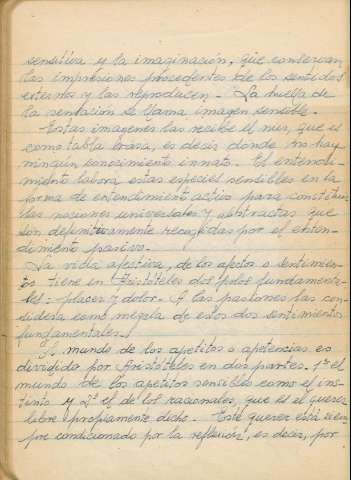 sensitiva y la imaginación, que conservan
las impresiones procedentes de los sentidos
externos y las reproducen. La huella de
la sensación se llama imagen sensible.
Estas imagenes las recibe el nus, que es
como tabla brasa, es decir, donde no hay
ningún conocimiento innato. El entendi-
miento labora estas especies sensibles en la
forma de entendimiento activo para constituir
las nociones universales y abstractas que
son definitivamente recogidas por el enten-
dimiento pasivo.
La vida afectiva, de los afectos o sentimien-
tos tiene en Aristóteles dos polos fundamenta-
les: placer y dolor. A las pasiones las con-
sidera como mezcla de estos dos sentimientos
fundamentales.
El mundo de los apetitos o apetencias es
dividido por Aristóteles en dos partes. 1º el
mundo de los apetitos sensibles como el ins-
tinto y 2º el de los racionales, que es el querer
libre propiamente dicho. Este querer está siem-
pre condicionado por la reflexión, es decir, por